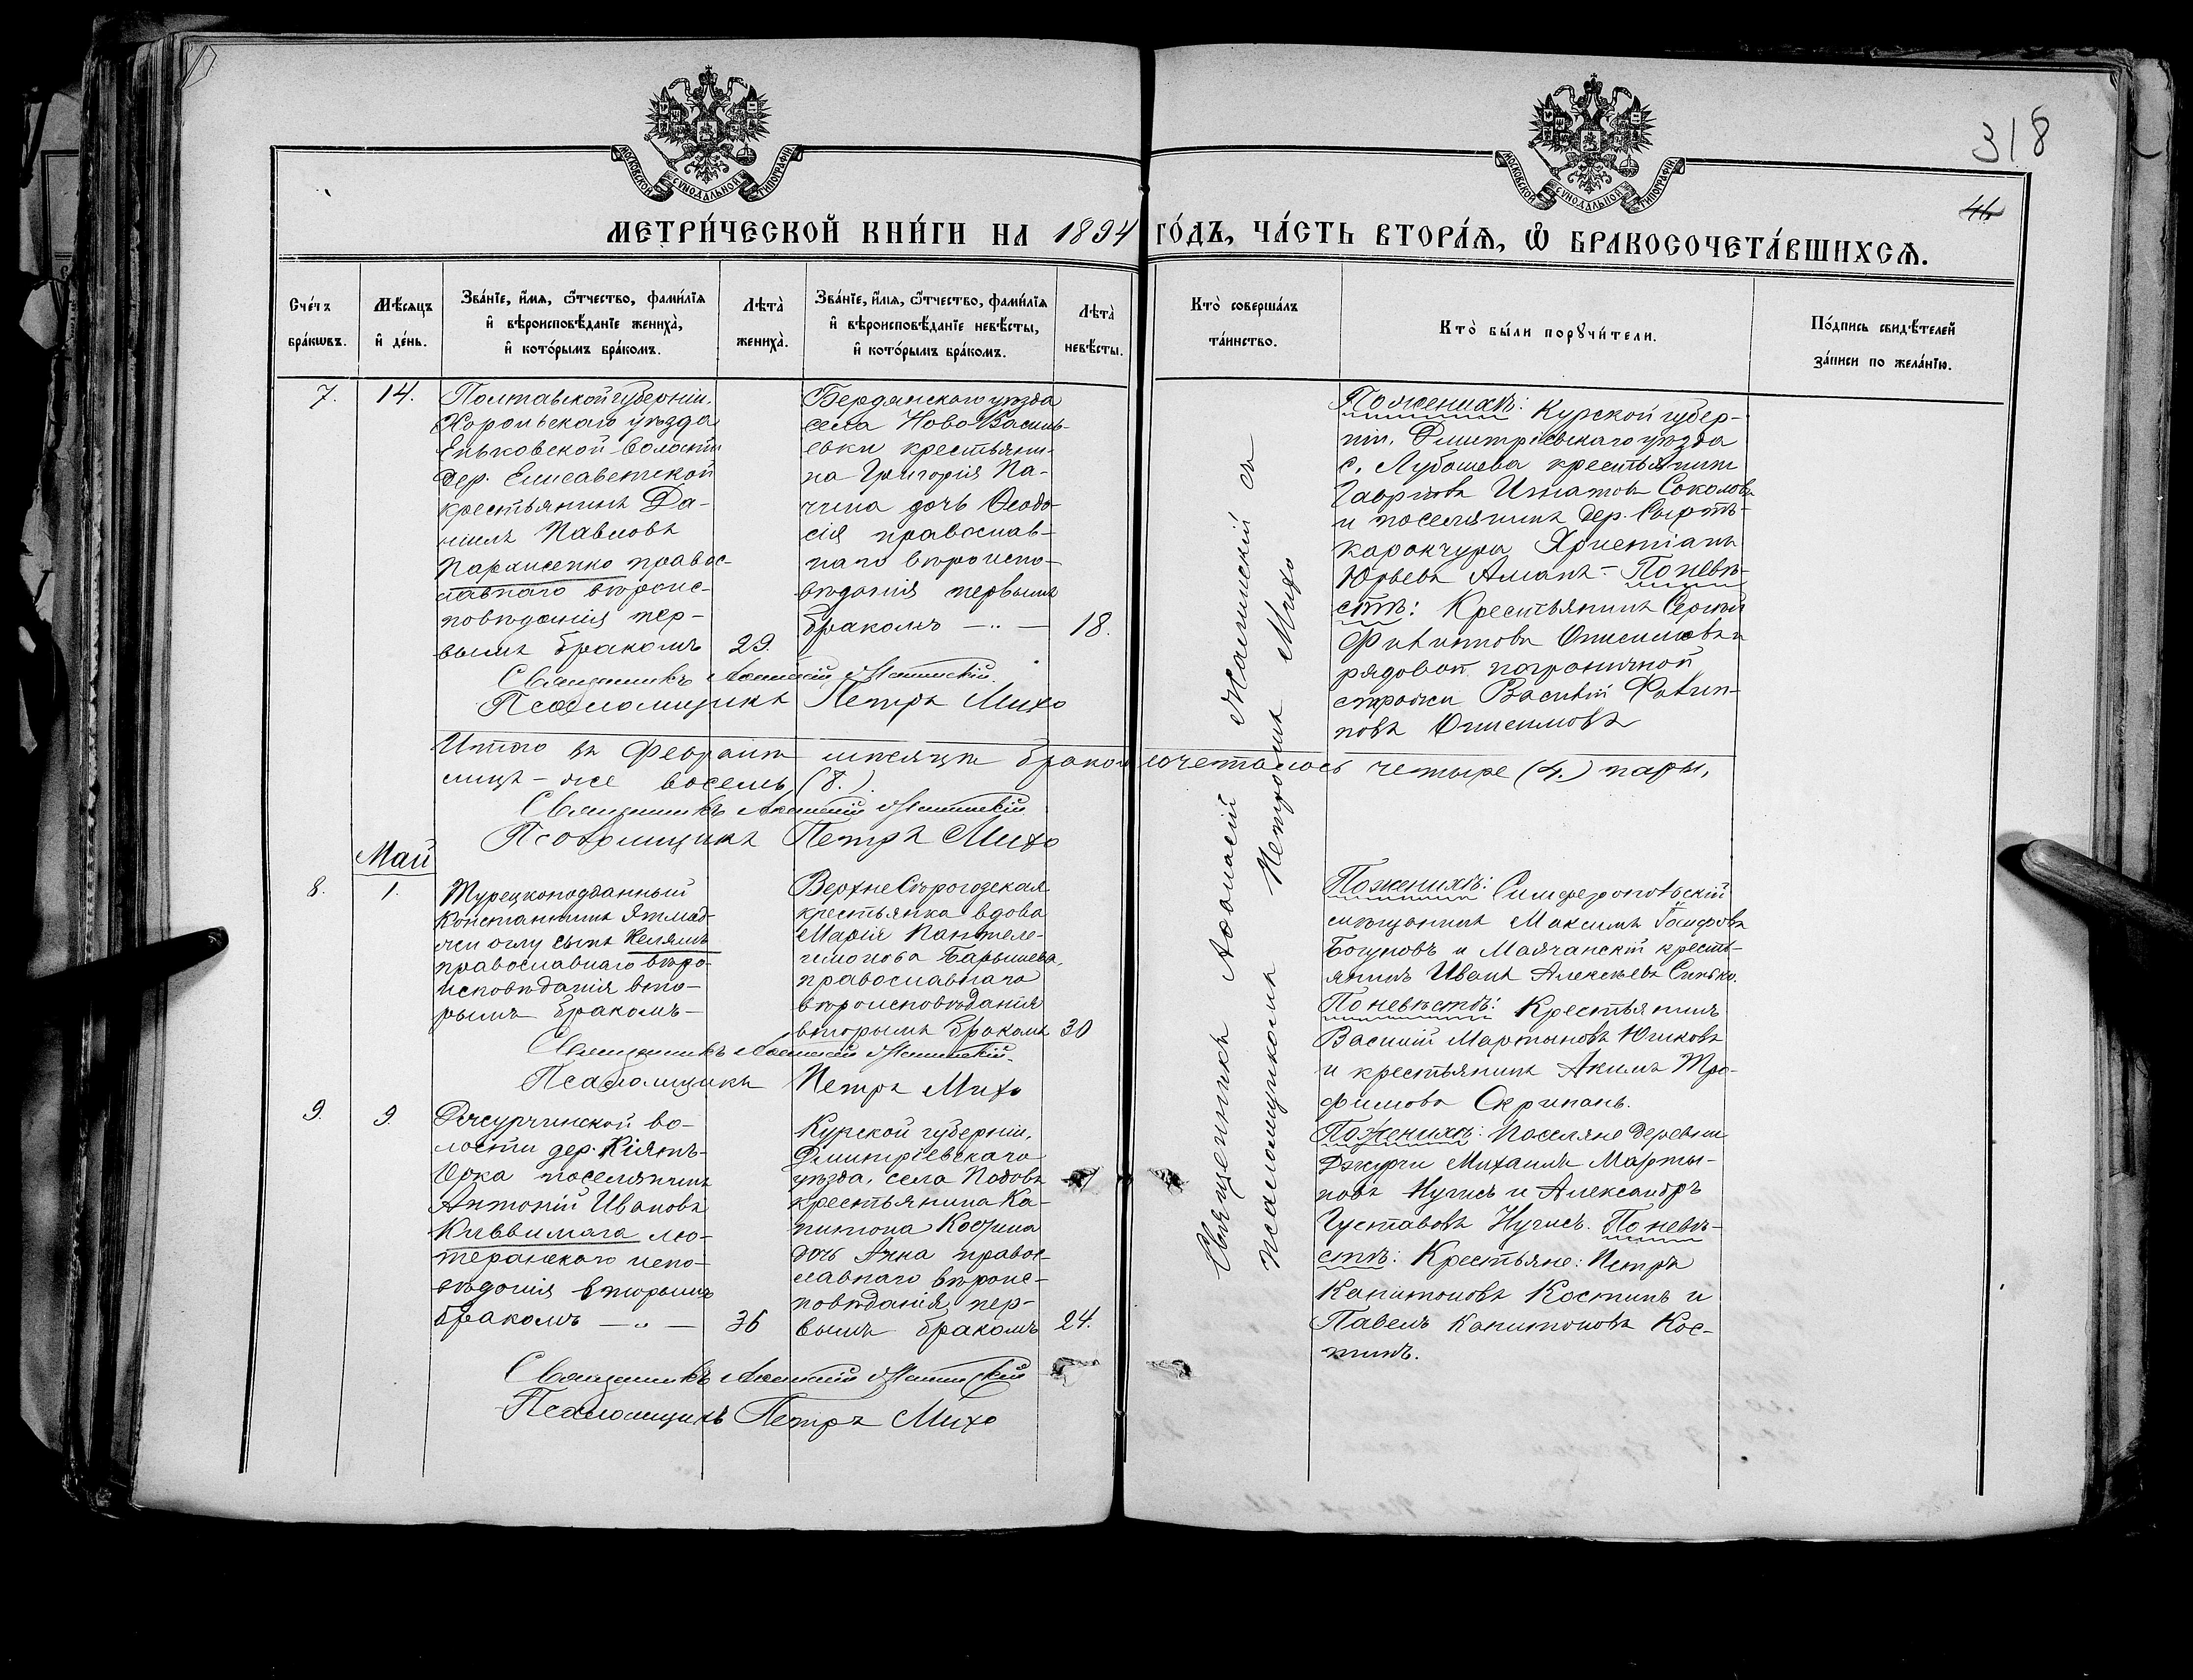 318
46
МОСКОВСКОЙ СѴНОДАЛЬНОЙ ТИПОГРАФІИ
МОСКОВСКОЙ СѴНОДАЛЬНОЙ ТИПОГРАФІИ
МЕТРИ́ЧЕСКОЙ КНИ́ГИ НА 1894 ГО́ДЪ, ЧА́СТЬ ВТОРА́Ѧ, Ѽ БРАКОСОЧЕТА́ВШИХСѦ.
Сче́тъ бра́кѡвъ.
Мѣ́сѧцъ и҆ де́нь.
Зва́нїе, и҆́мѧ, ѻ҆́тчество, фами́лїѧ
и҆ вѣроисповѣ́данїе жениха̀,
и҆ кото́рымъ бра́комъ.
Лѣта̀ жениха̀.
Зва́нїе, и҆́мѧ, ѻ҆́тчество, фами́лїѧ
и҆ вѣроисповѣ́данїе невѣ́сты,
и҆ кото́рымъ бра́комъ.
Лѣта̀ невѣ́сты.
Кто̀ соверша́лъ та́инство.
Кто̀ бы́ли порꙋчи́тели.
По́дпись свидѣ́телей за́писи по жела́нїю.
7.
14.
Полтавской губерніи.
Хорольскаго уѣзда
Еньковской волости
дер. Елисаветской
крестьянинъ Да-
ніилъ Павловъ
Пархисенко правос-
лавнаго вѣроис-
повѣданія пер-
вымъ бракомъ
29.
Бердянскаго уѣзда
села Ново-Василь-
евки крестьяни-
на Григорія Па-
чина дочь Ѳеодо-
сія православ-
наго вѣроиспо-
вѣданія первымъ
бракомъ — „ —
18.
По женихѣ: Курской губер-
ніи, Дмитріевскаго уѣзда
с. Лубошева крестьянинъ
Гавріилъ Игнатовъ Соколовъ
и поселянинъ дер. Сыртъ-
каракчура Христіанъ
Юрьевъ Аманъ - По невѣ-
стѣ: Крестьянинъ Сергѣй
Филиповъ Онисимовъ и
рядовой пограничной
стражи Василій Филип-
повъ Онисимовъ
Священникъ Аѳанасій
Псаломщикъ Петръ Михо
Итого въ Февралѣ мѣсяцѣ бракосочеталось четыре (4.) пары,
лицъ - же восемь (8.).
Священникъ Аѳанасій
Псаломщикъ Петръ Михо
Май
8.
1.
Турецкоподданный
Константинъ
оглу сынъ
православнаго вѣро-
исповѣданія вто-
рымъ бракомъ —
Верхне Сѣрогозская
крестьянка вдова
Марія Пантеле-
имонова Барышева,
православнаго
вѣроисповѣданія
вторымъ бракомъ
30
По женихѣ: Симферопольскій
мѣщанинъ Максимъ
Богуновъ и Маячанскій кресть-
янинъ Иванъ Алексѣевъ Синько.
По невѣстѣ: Крестьянинъ
Василій Мартыновъ Юшковъ
и крестьянинъ Акимъ Тро-
фимовъ Скрипань.
Священникъ Аѳанасій
Псаломщикъ Петръ Михо
9.
9.
во-
лости дер. Кіятъ-
Орка поселянинъ
Антоній Ивановъ
Кливвимага лю-
теранскаго испо-
вѣданія вторымъ
бракомъ — „ —
36
Курской губерніи,
Дмитріевскаго
уѣзда, села Подовъ
крестьянина Ка-
питона Костина
дочь Анна правос-
лавнаго вѣроис-
повѣданія, пер-
вымъ бракомъ
24.
По женихѣ: поселяне деревни
Джурчи Михаилъ Марты-
новъ Нугисъ и Александръ
Густавовъ Нугисъ. По невѣ-
стѣ: Крестьяне: Петръ
Капитоновъ Костинъ и
Павелъ Капитоновъ Кос-
тинъ.
Священникъ Аѳанасій
Псаломщикъ Петръ Михо
Священникъ Аѳанасій съ
псаломщикомъ Петромъ Михо